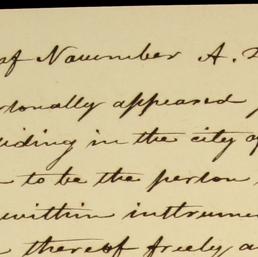 of November A.
rsonally appeared
iding in the city of
to be the person
within instrume
thereof freely a